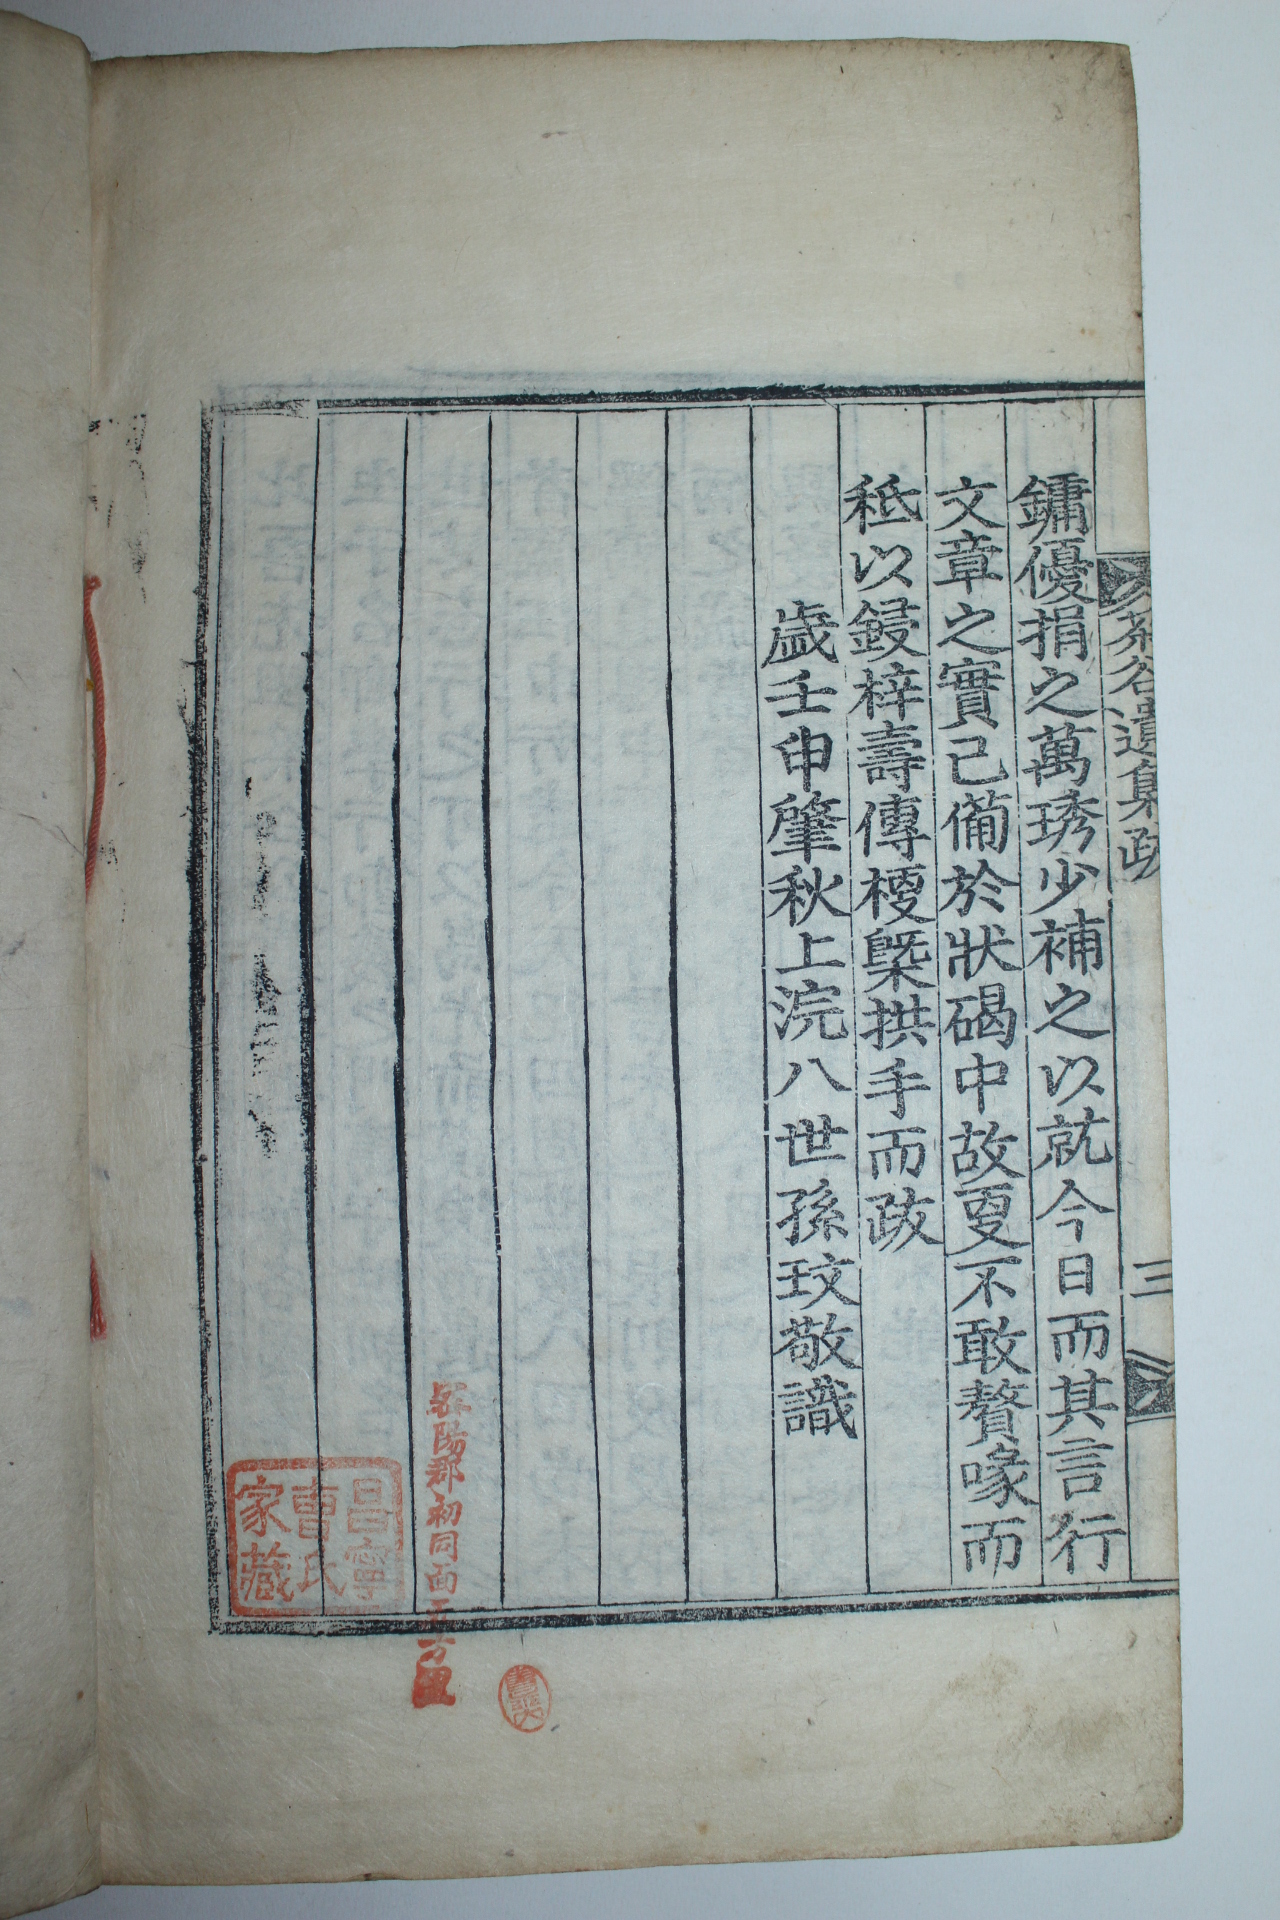 茶谷遺集跋
三
鏞優捐之萬琇少補之以就今日而其言行
文章之實己備於狀碣中故更不敢贅喙而
秪以鋟梓壽傳梗槩拱手而跋
歲壬申肇秋上浣八世孫玟敬識
陽郡初同面
昌寧
曺氏
家藏